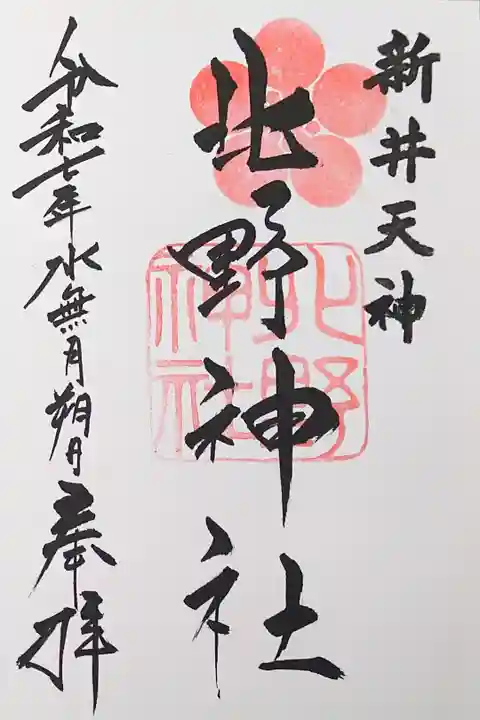 新井天神
北野神社
北野神社
令和七年水無月朔日奉拝